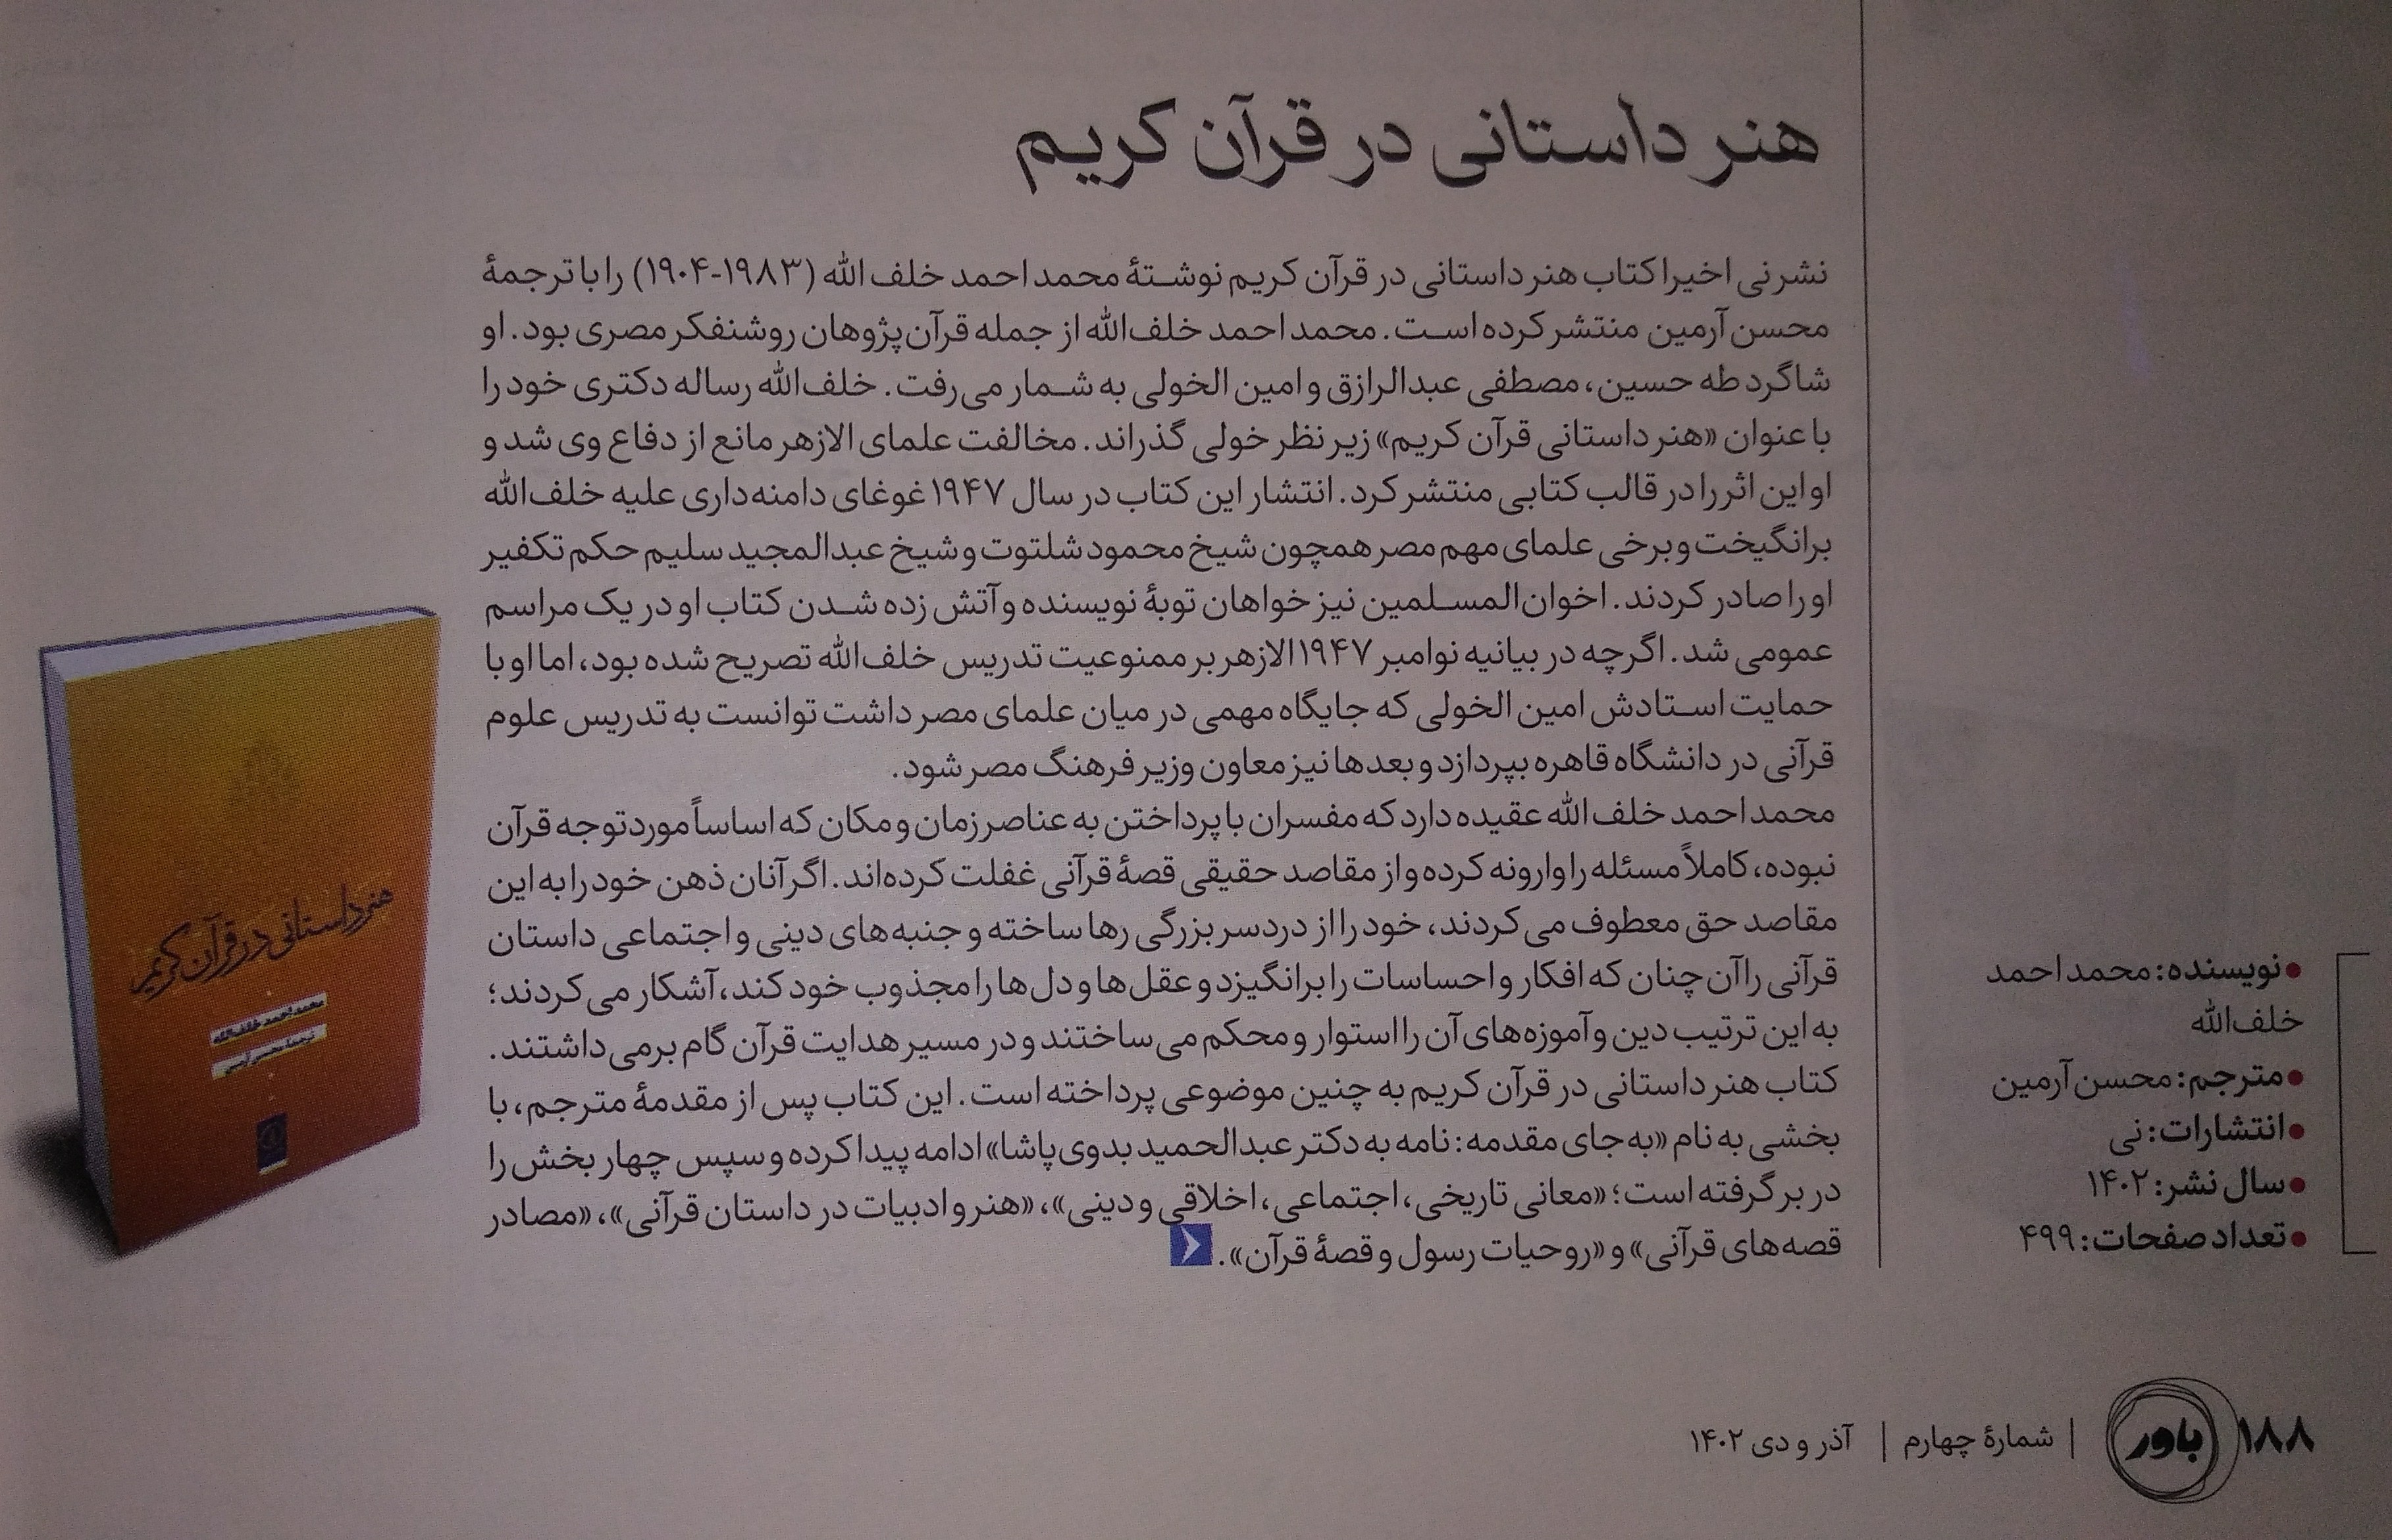 هنر داستانی در قرآن کریم
نشر نی اخیرا کتاب هنر داستانی در قرآن کریم نوشتهٔ محمد احمد خلف الله (۱۹۸۳-۱۹۰۴) را با ترجمهٔ
محسن آرمین منتشر کرده است. محمد احمد خلف‌الله از جمله قرآن‌پژوهان روشنفکر مصری بود. او
شاگرد طه حسین، مصطفی عبدالرازق و امین الخولی به شمار می‌رفت. خلف‌الله رساله دکتری خود را
با عنوان «هنر داستانی قرآن کریم» زیر نظر خولی گذراند. مخالفت علمای الازهر مانع از دفاع وی شد و
او این اثر را در قالب کتابی منتشر کرد. انتشار این کتاب در سال ۱۹۴۷ غوغای دامنه‌داری علیه خلف‌الله
برانگیخت و برخی علمای مهم مصر همچون شیخ محمود شلتوت و شیخ عبدالمجید سلیم حکم تکفیر
او را صادر کردند. اخوان‌المسلمین نیز خواهان توبهٔ نویسنده و آتش زده شدن کتاب او در یک مراسم
عمومی شد. اگرچه در بیانیه نوامبر ۱۹۴۷ الازهر بر ممنوعیت تدریس خلف‌الله تصریح شده بود، اما او با
حمایت استادش امین الخولی که جایگاه مهمی در میان علمای مصر داشت توانست به تدریس علوم
قرآنی در دانشگاه قاهره بپردازد و بعدها نیز معاون وزیر فرهنگ مصر شود.
محمد احمد خلف‌الله عقیده دارد که مفسران با پرداختن به عناصر زمان و مکان که اساساً مورد توجه قرآن
نبوده، کاملاً مسئله را وارونه کرده و از مقاصد حقیقی قصهٔ قرآنی غفلت کرده‌اند. اگر آنان ذهن خود را به این
مقاصد حق معطوف می‌کردند، خود را از دردسر بزرگی رها ساخته و جنبه‌های دینی و اجتماعی داستان
قرآنی را آن چنان که افکار و احساسات را برانگیزد و عقل‌ها و دل‌ها را مجذوب خود کند، آشکار می‌کردند؛
به این ترتیب دین و آموزه‌های آن را استوار و محکم می‌ساختند و در مسیر هدایت قرآن گام برمی‌داشتند.
کتاب هنر داستانی در قرآن کریم به چنین موضوعی پرداخته است. این کتاب پس از مقدمهٔ مترجم، با
بخشی به نام «به جای مقدمه: نامه به دکتر عبدالحمید بدوی پاشا» ادامه پیدا کرده و سپس چهار بخش را
در بر گرفته است؛ «معانی تاریخی، اجتماعی، اخلاقی و دینی»، «هنر و ادبیات در داستان قرآنی»، «مصادر
قصه‌های قرآنی» و «روحیات رسول و قصهٔ قرآن».
هنر داستانی در قرآن کریم
محمد احمد خلف‌الله
ترجمهٔ محسن آرمین
• نویسنده: محمد احمد
خلف‌الله
• مترجم: محسن آرمین
• انتشارات: نی
• سال نشر: ۱۴۰۲
• تعداد صفحات: ۴۹۹
۱۸۸ باور | شمارهٔ چهارم | آذر و دی ۱۴۰۲